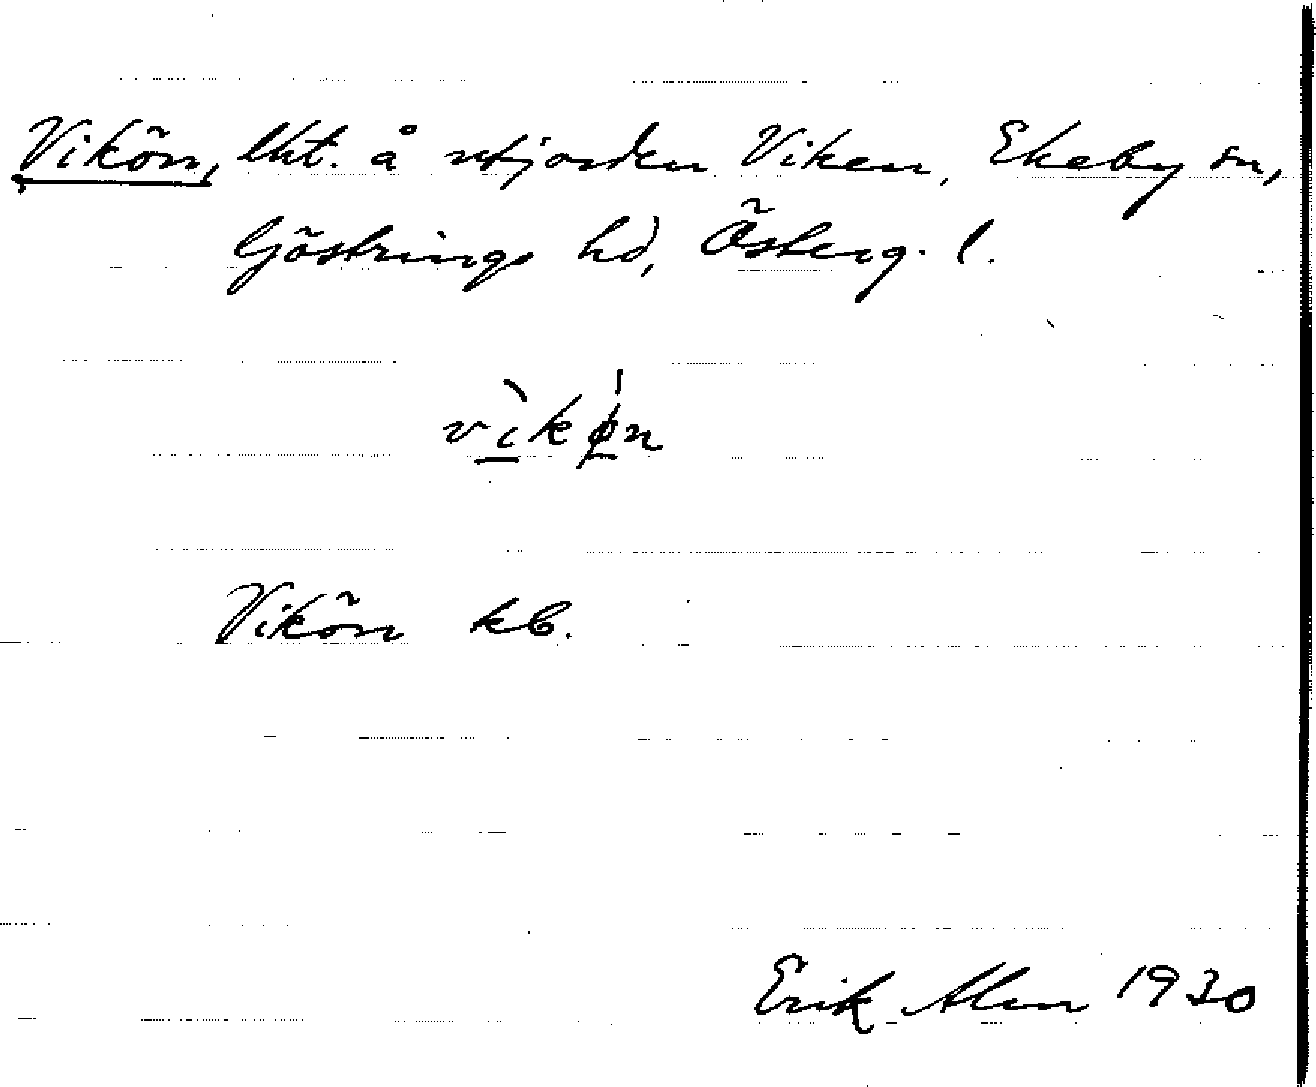 Vikön, lht. å utjorden Viken, Ekeby sn,
Göstrings hd, Österg. l.
vìkǿn
Vikön kb.
Erik Alm 1930